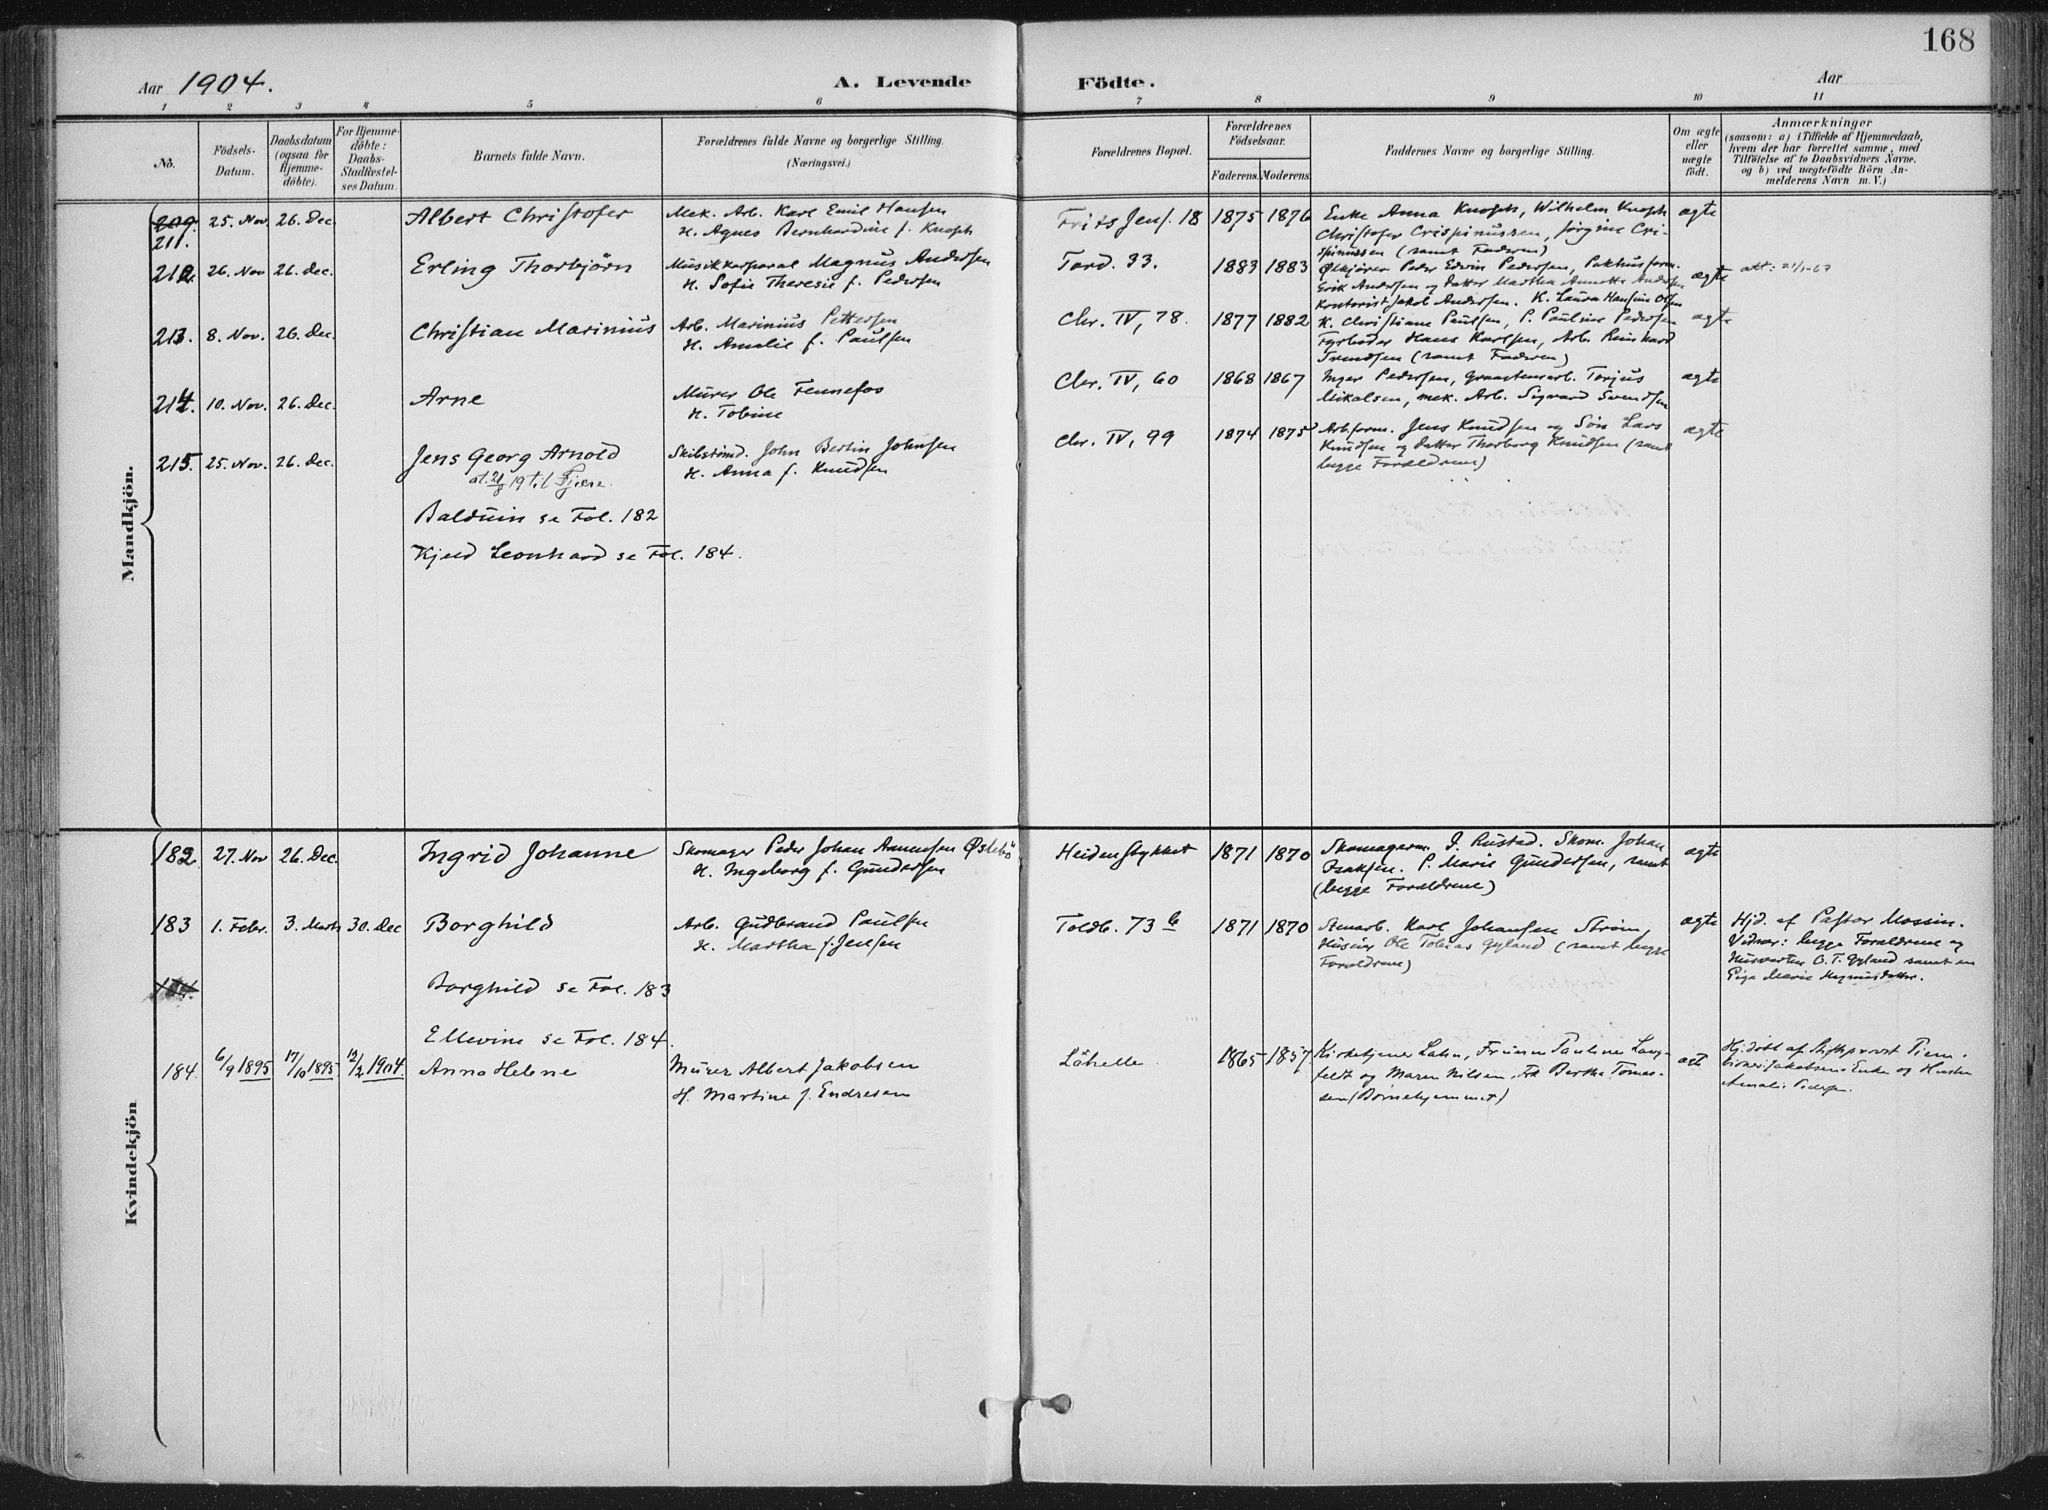 168
Aar 1904.
A. Levende
Födte.
Aar
1 2 3 4 5 6 7 8 9 10 11
No.
Födsels-
Datum.
Daabsdatum
(ogsaa for
Hjemme-
döbte).
For Hjemme-
döbte:
Daabs-
Stadfæstel-
ses Datum.
Barnets fulde Navn.
Forældrenes fulde Navne og borgerlige Stilling.
(Næringsvei.)
Forældrenes Bopæl.
Forældrenes
Födselsaar.
Faderens. Moderens.
Faddernes Navne og borgerlige Stilling.
Om ægte
eller
uægte
födt.
Anmærkninger
(saasom: a) i Tilfælde af Hjemmedaab,
hvem der har forrettet samme, med
Tilföielse af to Daabsvidners Navne,
og b) ved uægtefödte Börn An-
melderens Navn m. V.)
Mandkjön.
209
211. 25. Nov. 26. Dec. Albert Christofer
Mek. Arb. Karl Emil Hansen
H. Agnes Bernhardine f. Knoph
Frits Jens. 18 1875 1876
Enke Anna Knoph, Wilhelm Knoph
Christofer Crispinussen, Jørgine Cri-
spinussen (samt Faderen)
ægte
212. 26. Nov 26. Dec. Erling Thorbjörn
Musikkorporal Magnus Andersen
H. Sofie Theresie f. Pedersen
Tord. 33. 1883 1883
Ølkjører Peder Edvin Pedersen, Pakhusform.
Erik Andersen og Datter Martha Annette Andersen
Kontorist Jakob Andersen. K. Laura Hansine Olsen
ægte
att: 21/1-63
213. 8. Nov. 26. Dec. Christian Marinius
Arb. Marinius Pettersen
H. Amalie f. Paulsen
Chr. IV, 78. 1877 1882
K. Christiane Paulsen, P. Pauline Pedersen
Fyrbøder Hans Karlsen, Arb. Reinhard
Svendsen (samt Faderen)
ægte
214. 10. Nov. 26. Dec. Arne
Murer Ole Fennefos
H. Tobine
Chr. IV, 60 1868 1867
Inger Pedersen, Graastensarb. Torjus
Mikalsen, mek. Arb. Sigvard Svendsen
ægte
215. 25. Nov. 26. Dec. Jens Georg Arnold
Skibstømd. John Bertin Johnsen
H. Anna f. Knudsen
Chr. IV, 99 1874 1875
Arb.form. Jens Knudsen og Søn Lars
Knudsen og Datter Thorborg Knudsen (samt
begge Forældrene)
ægte
19 til Fjære.
Balduin se Fol. 182
Kjeld Leonhard se Fol. 184.
Kvindekjön
182 27. Nov 26. Dec. Ingrid Johanne
Skomager Peder Johan Annensen Øslebö
H. Ingeborg f. Gundersen
Heidenstykket 1871 1870
Skomagerm. J. Rustad. Skom. Johan
Isaksen. P. Marie Gundersen, samt
(begge Forældrene)
ægte
183 1. Febr. 3. Marts 30. Dec Borghild
Arb. Gudbrand Paulsen
H. Martha f. Jensen
Toldb. 73 b 1871 1870
Stenarb. Karl Johansen Strøm,
Husier Ole Tobias Gyland (samt begge
Forældrene)
ægte
Hjd. af Pastor Mossin.
Vidner: begge Forældrene og
Husvarten O. T. Gyland samt en
Pige Marie
184. Borghild se Fol. 183
Ellevine se Fol. 184.
184. 6/9 1895 17/10 1895 12/2 1904. Anna Helene
Murer Albert Jakobsen
H. Martine f. Endresen
Låhelle 1865 1857
Kirketjener Lahn, Fruerne Pauline Lang-
feldt og Maren Nilsen, Frk Bertha Tønnes-
sen (Børnehjemmet)
ægt
Hjdöbt af Stiftsprovst
Jakobsens Enke og
Amalie Pedersen.